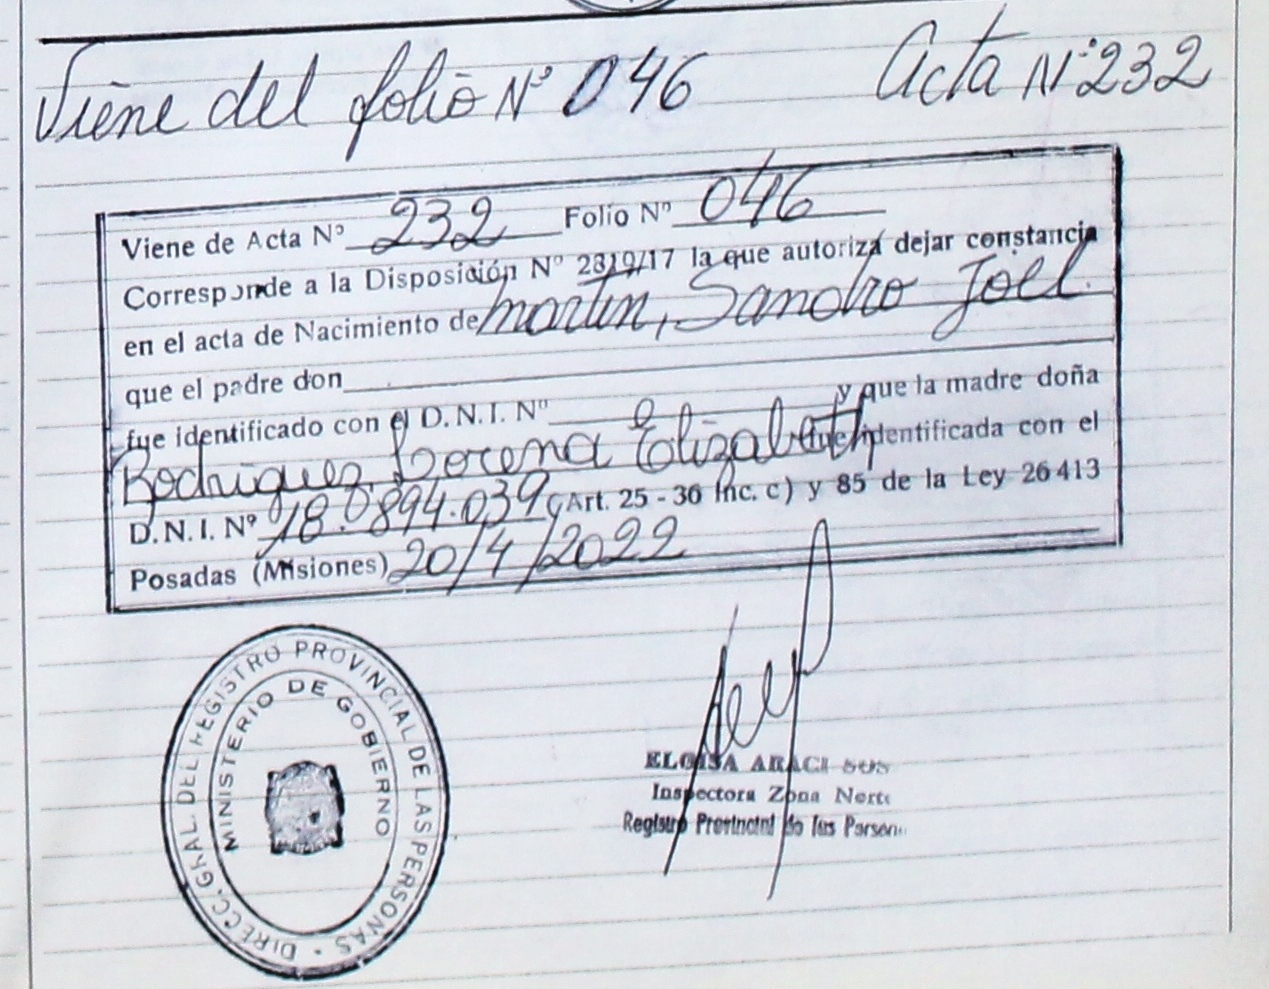 Viene del folio Nº 046 Acta Nº 232
Viene de Acta Nº 232 Folio Nº 046
Corresponde a la Disposición Nº 2319/17 la que autoriza dejar constancia
en el acta de Nacimiento de Martin, Sandro Joel.
que el padre don
fue identificado con el D.N.I. Nº y que la madre doña
Rodriguez, Lorena Elizabeth fue identificada con el
D.N.I. Nº 18.894.039 (Art. 25 - 36 Inc. c) y 85 de la Ley 26413
Posadas (Misiones) 20/4/2022
DIRECC. GRAL. DEL REGISTRO PROVINCIAL DE LAS PERSONAS
MINISTERIO DE GOBIERNO
ELOISA ARACI
Inspectora Zona Norte
Registro Provincial de las Person